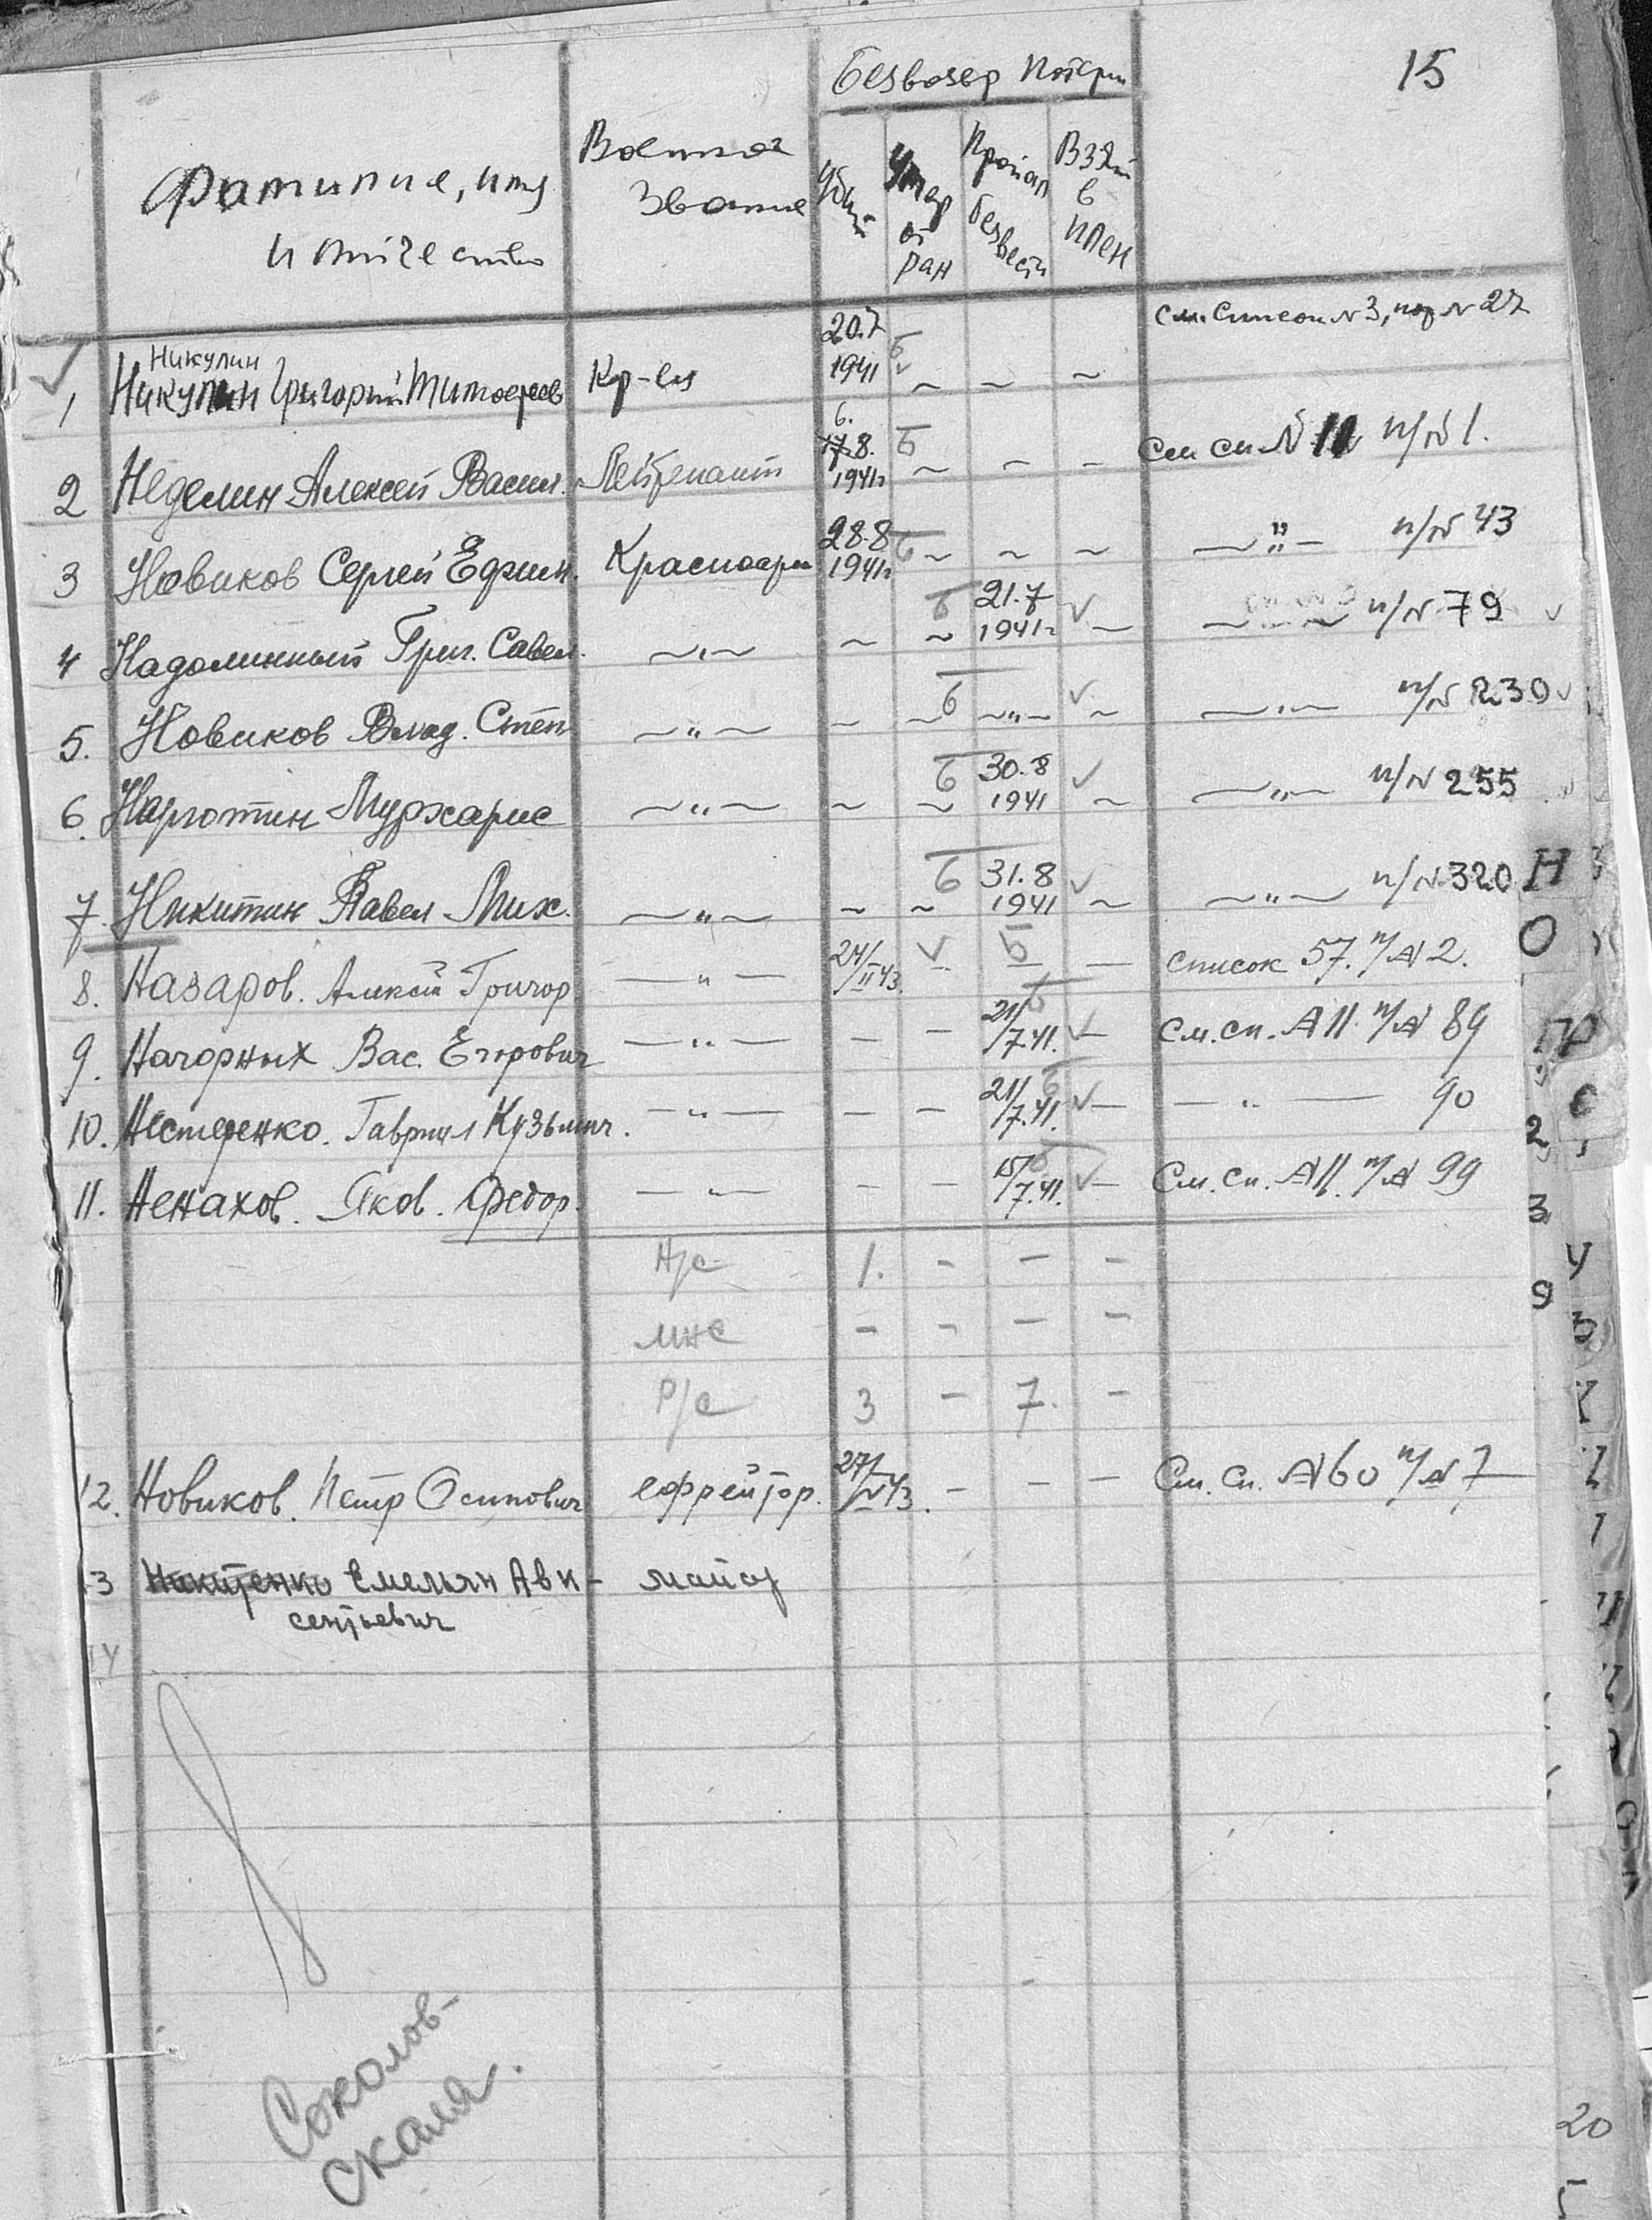 15
Безвозвр потери
Фамилие, имя
и отчество
Военное
звание
Убит
Умер
от
ран
Пропал
безвести
Взят
в
плен
см. список N 3, пор N 27
Никулин
1 Никулин Григорий Тимофеев Кр-ец 20.7 1941 б ~ ~ ~
2 Неделин Алексей Васил. Лейтенант 6. 17.8. 1941г б ~ ~ – См сп N 11 п/N 1.
3 Новиков Сергей Ефим. Красноарм 28.8 1941г б ~ ~ ~ —"— п/N 43
4 Надолинный Григ. Савел. ~"~ ~ б ~ 21.7 1941г – ~ ~ п/N 79
5. Новиков Влад. Степ ~"~ – б ~ ~"~ ~ ~"~ п/N 230
6. Наргютин Мухарис ~"~ ~ б ~ 30.8 1941 ~ ~"~ п/N 255
7. Никитин Павел Мих. ~"~ ~ б ~ 31.8 1941 ~ ~"~ п/N 320
8. Назаров. Алексей Григор. —"— 24/II 43. – б – – список 57. п/N 2.
9. Начорных Вас. Егорович —"— – – 21/7.41. б – См. сп. N 11. п/N 89
10. Нестеренко. Гаврил Кузьмич. —"— – – 21/7.41. б – —"— 90
11. Ненахов. Яков. Федор. —"— – – 15/7.41. б – См. сп. N 11. п/N 99
Н/с 1. – – –
мнс – – – –
Р/с 3 – 7. –
12. Новиков. Петр Осипович ефрейтор. – – – См. сп. N 60 п/N 7
13 Никитенко Емельян Авк- майор
сентьевич
14
Соколов-
Скаля.
Н
О
П
Р
С
2
3
У
9
20